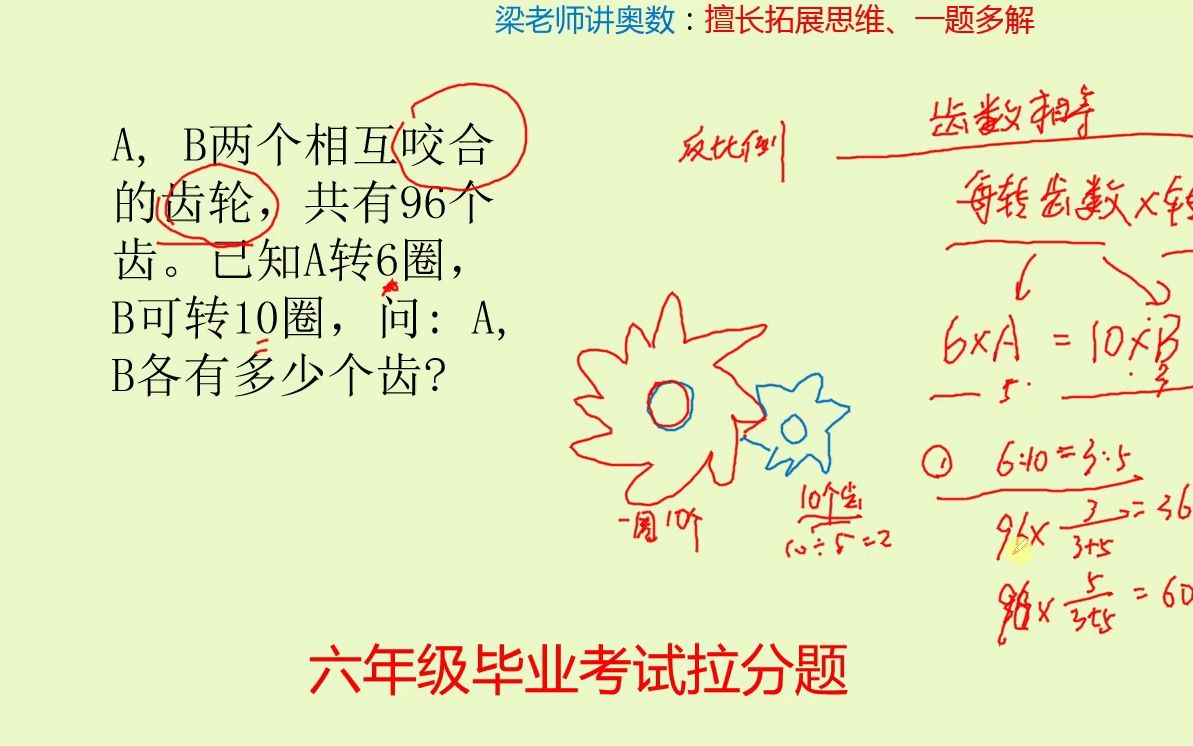 梁老师讲奥数：擅长拓展思维、一题多解
A, B两个相互咬合
的齿轮，共有96个
齿。已知A转6圈，
B可转10圈，问: A,
B各有多少个齿?
反比例
齿数相等
每转齿数×转
6×A = 10×B
5 3
① 6:10=3:5
96× 3/(3+5) = 36
96× 5/(3+5) = 60
一圈10个
10个齿
10÷5=2
六年级毕业考试拉分题